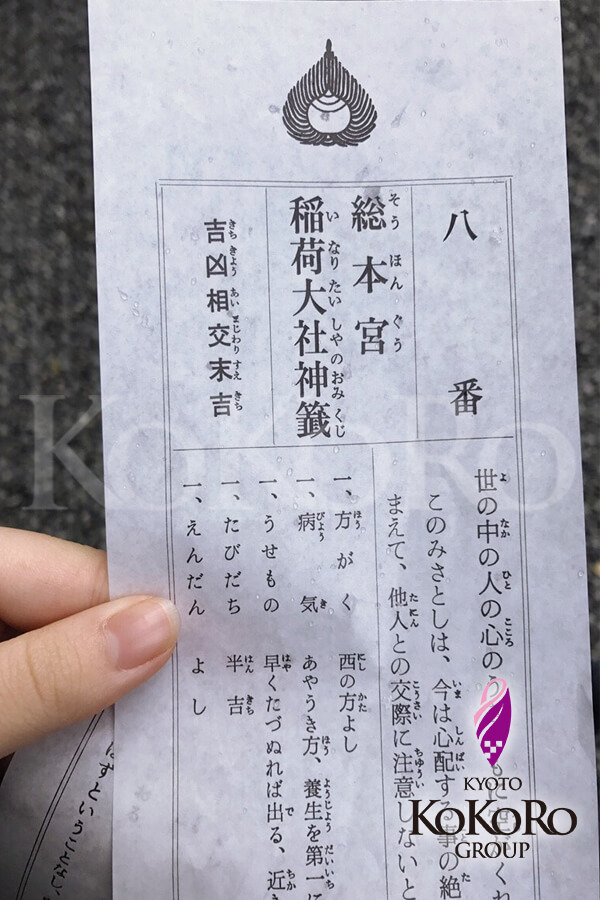 八番
総本宮
稲荷大社神籤
吉凶相交末吉
世の中の人の心のう
このみさとしは、今は心配する事の絶
まえて、他人との交際に注意しないと
一、方がく 西の方よし
一、病気 あやうき方、養生を第一に
一、うせもの 早くたづぬれば出る、近
一、たびだち 半吉
一、えんだん よし
はずということなし、
KoKoRo
KYOTO
KoKoRo
GROUP